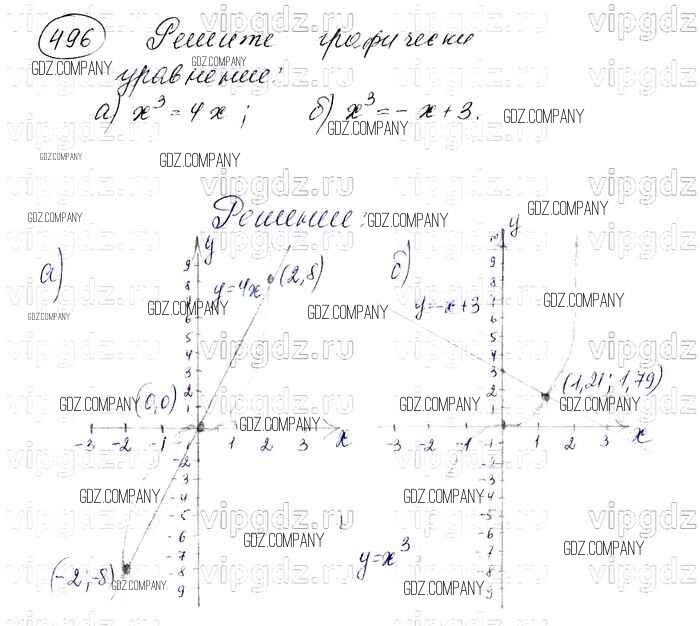 496 Решите графически
уравнение:
а) x³ = 4x; б) x³ = - x + 3.
Решение:
а)
y
9
8
7
6
5
4
3
2
1
y=4x
(2,8)
(0,0)
-3 -2 -1 1 2 3 x
-3
-4
-5
-6
-7
-8
-9
(-2;-8)
б)
y
10
9
8
7
6
5
4
3
2
1
y=-x+3
(1,21; 1,79)
-3 -2 -1 1 2 3 x
-1
-2
-3
-4
-5
-6
-7
-8
-9
y=x³
GDZ.COMPANY
vipgdz.ru